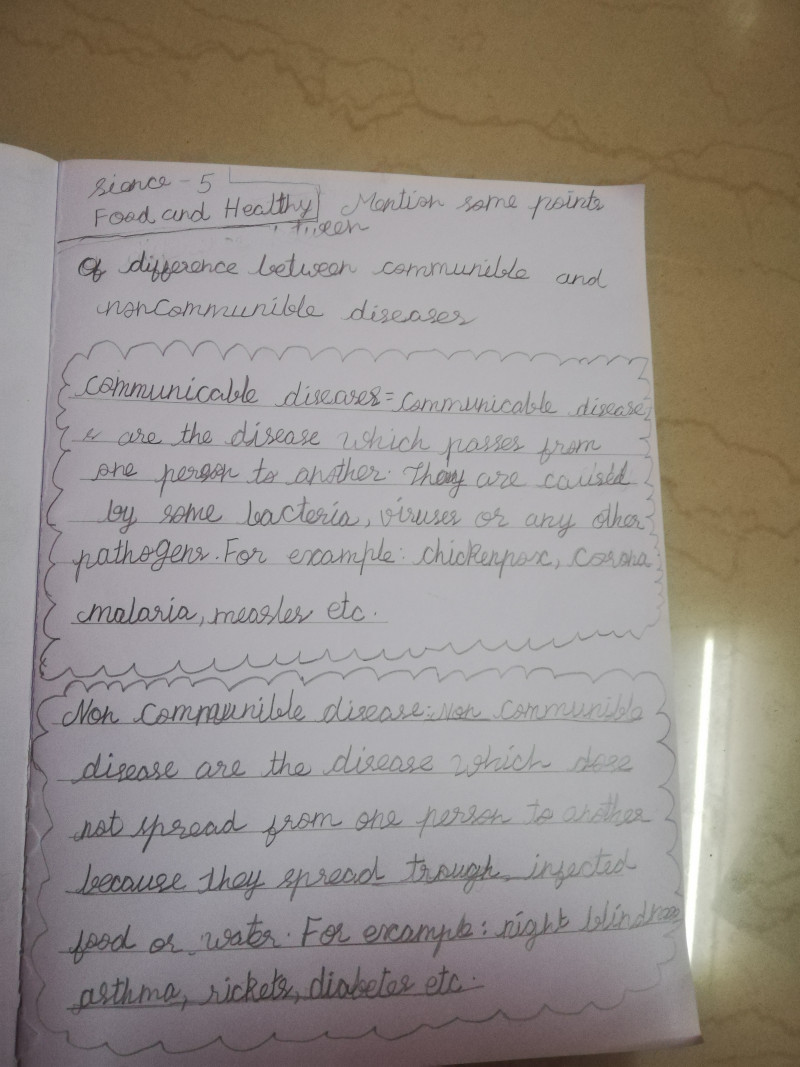 siance - 5
Food and Healthy Mention some points
of difference between communible and
noncommunible diseases
communicable diseases = communicable disease
are the disease which passes from
one person to another. They are caused
by some bacteria, viruses or any other
pathogens. For example: chickenpox, corona
malaria, measles etc.
Non communible disease: Non communible
disease are the disease which dose
not spread from one person to another
because they spread trough infected
food or water. For example: night blindness
asthma, rickets, diabetes etc.